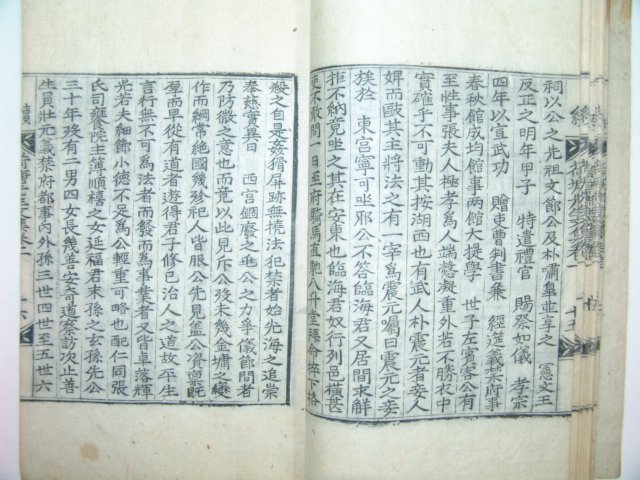 祠以公之先祖文節公及朴嘯皐並享之 憲文王
反正之明年甲子 特遣禮官 賜祭如儀 孝宗
四年以宣武功 贈吏曹判書兼 經筵義禁府事
春秋館成均館事兩館大提學 世子左賓客公有
至性事張夫人極孝爲人端慤凝重外若不勝衣中
實確乎不可動其按湖西也有武人朴震元者妾人
婢而毆其主將法之有一宰爲震元囑曰震元之妾
族於 東宮寧可坐邪公不答臨海君又居間求解
拒不納竟坐之其在安東也臨海君奴行列邑橫甚
吏不敢問一日至府騎馬直馳八升堂拜命捽下格
殺之自是姦猾屛跡無撓法犯禁者始先海之追崇
奉慈實異日 西宮錮廢之兆公之力爭儀節間者
乃防微之意也而竟以此見斥公歿未幾金墉之變
作而綱常絶國幾殄祀人皆服公先見盖公資稟旣
厚而早從有道者遊得君子修已治人之道故平生
言行無不可爲法者而發而爲事業者又皆卓落輝
光若夫細節小德不足爲公輕重可略也配仁同張
氏司饔院主簿順楮之女延福君末孫之玄孫先公
三十年歿有二男四女長幾善安奇道察訪次止善
生員壯元義禁府都事內外孫三世四世至五世六